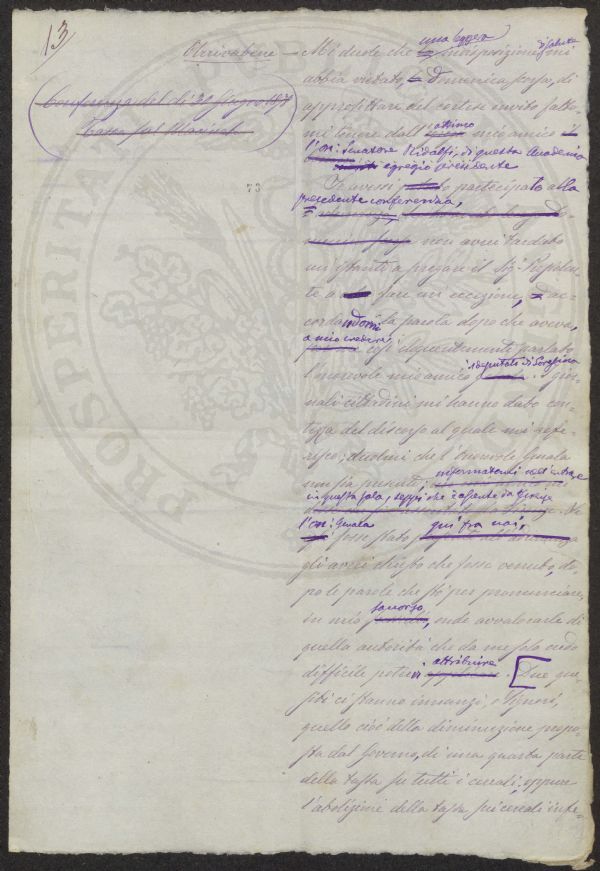 13
Arrivabene — Mi duole che una leggera indisposizione di salute mi
Conferenza del dì 29 Giugno 1879
Tassa sul Macinato
abbia vietato, Domenica scorsa, di
approfittare del cortese invito fatto-
mi tenere dall' ottimo mio amico il
l'on: Senatore Ridolfi, di questa Accademia
egregio presidente
Se avessi partecipato alla
precedente conferenza,
73
non avrei tardato
un istante a pregare il Sig: Presiden-
te a fare un eccezione, ac-
cordandomi la parola dopo che aveva,
a mio credere così eloquentemente parlato
l'onorevole mio amico deputato di
I gior-
nali cittadini mi hanno dato con-
tezza del discorso al quale mi rife-
risco; duolmi che l'onorevole Guala
non sia presente;
informatomi nell'entrare
in questa sala, seppi che è assente da Firenze
Se
l'on: Guala fosse stato qui fra noi,
gli avrei chiesto che fosse venuto, do-
po le parole che sto per pronunciare,
in mio soccorso, onde avvalorarle di
quella autorità che da me solo credo
difficile potervi attribuire. [Due que-
siti ci stanno innanzi, o Signori,
quello cioè della diminuzione propo-
sta dal Governo, di una quarta parte
della tassa su tutti i cereali, oppure
l'abolizione della tassa sui cereali infe-